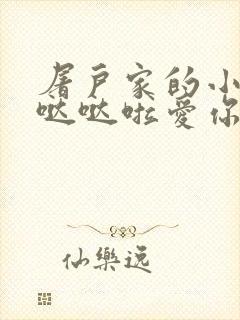 屠户家的小
哒哒啦爱你
仙樂逸